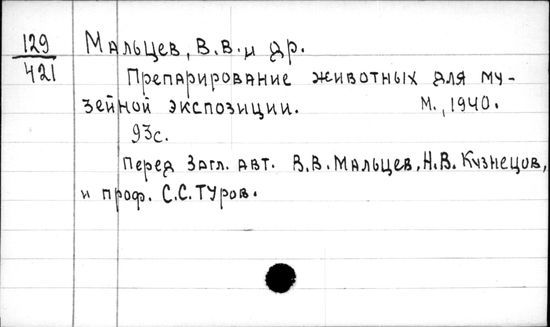 129
421
Мальцев, В.В. и др.
Препарирование животных для му-
зейной экспозиции. М., 1940.
93с.
Перед загл. авт. В.В. Мальцев, Н.В. Кузнецов,
и проф. С.С. Туров.